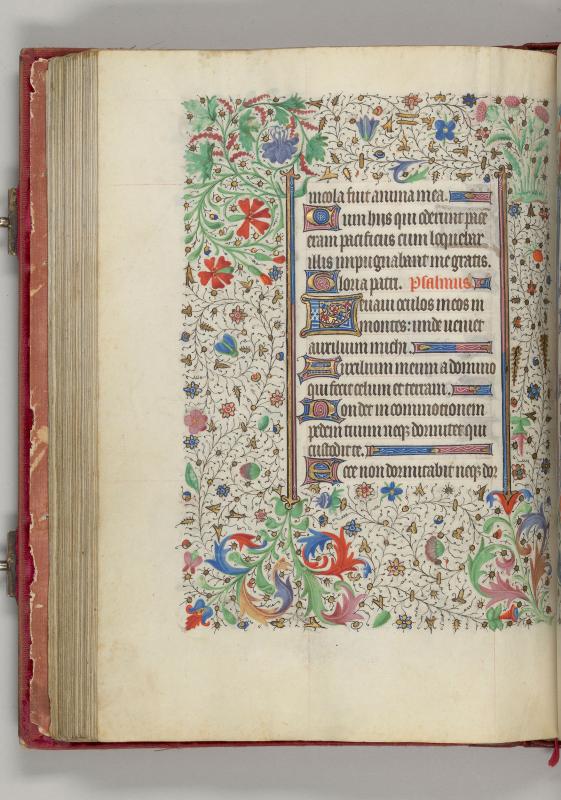 incola fuit anima mea.
Cum hijs qui oderunt pace
eram pacificus cum loquebar
illis impugnabant me gratis.
Gloria patri. Psalmus.
Leuaui oculos meos in
montes: unde ueniet
auxilium michi.
Auxilium meum a domino
qui fecit celum et terram.
Non det in commotionem
pedem tuum neqz dormitet qui
custodit te.
Ecce non dormitabit neqz dor